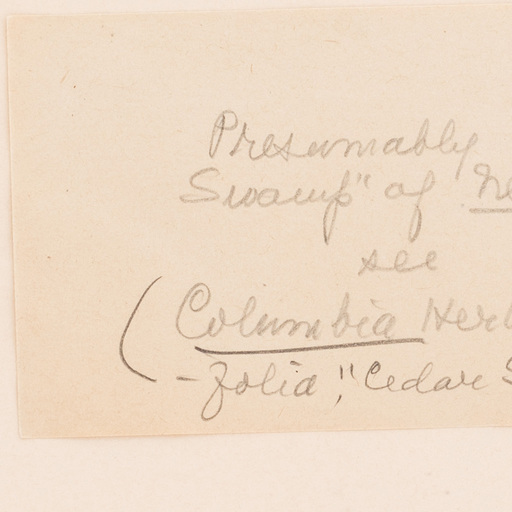 Presumably
Swamp" of
see
(Columbia Herb
-folia, "Cedar S